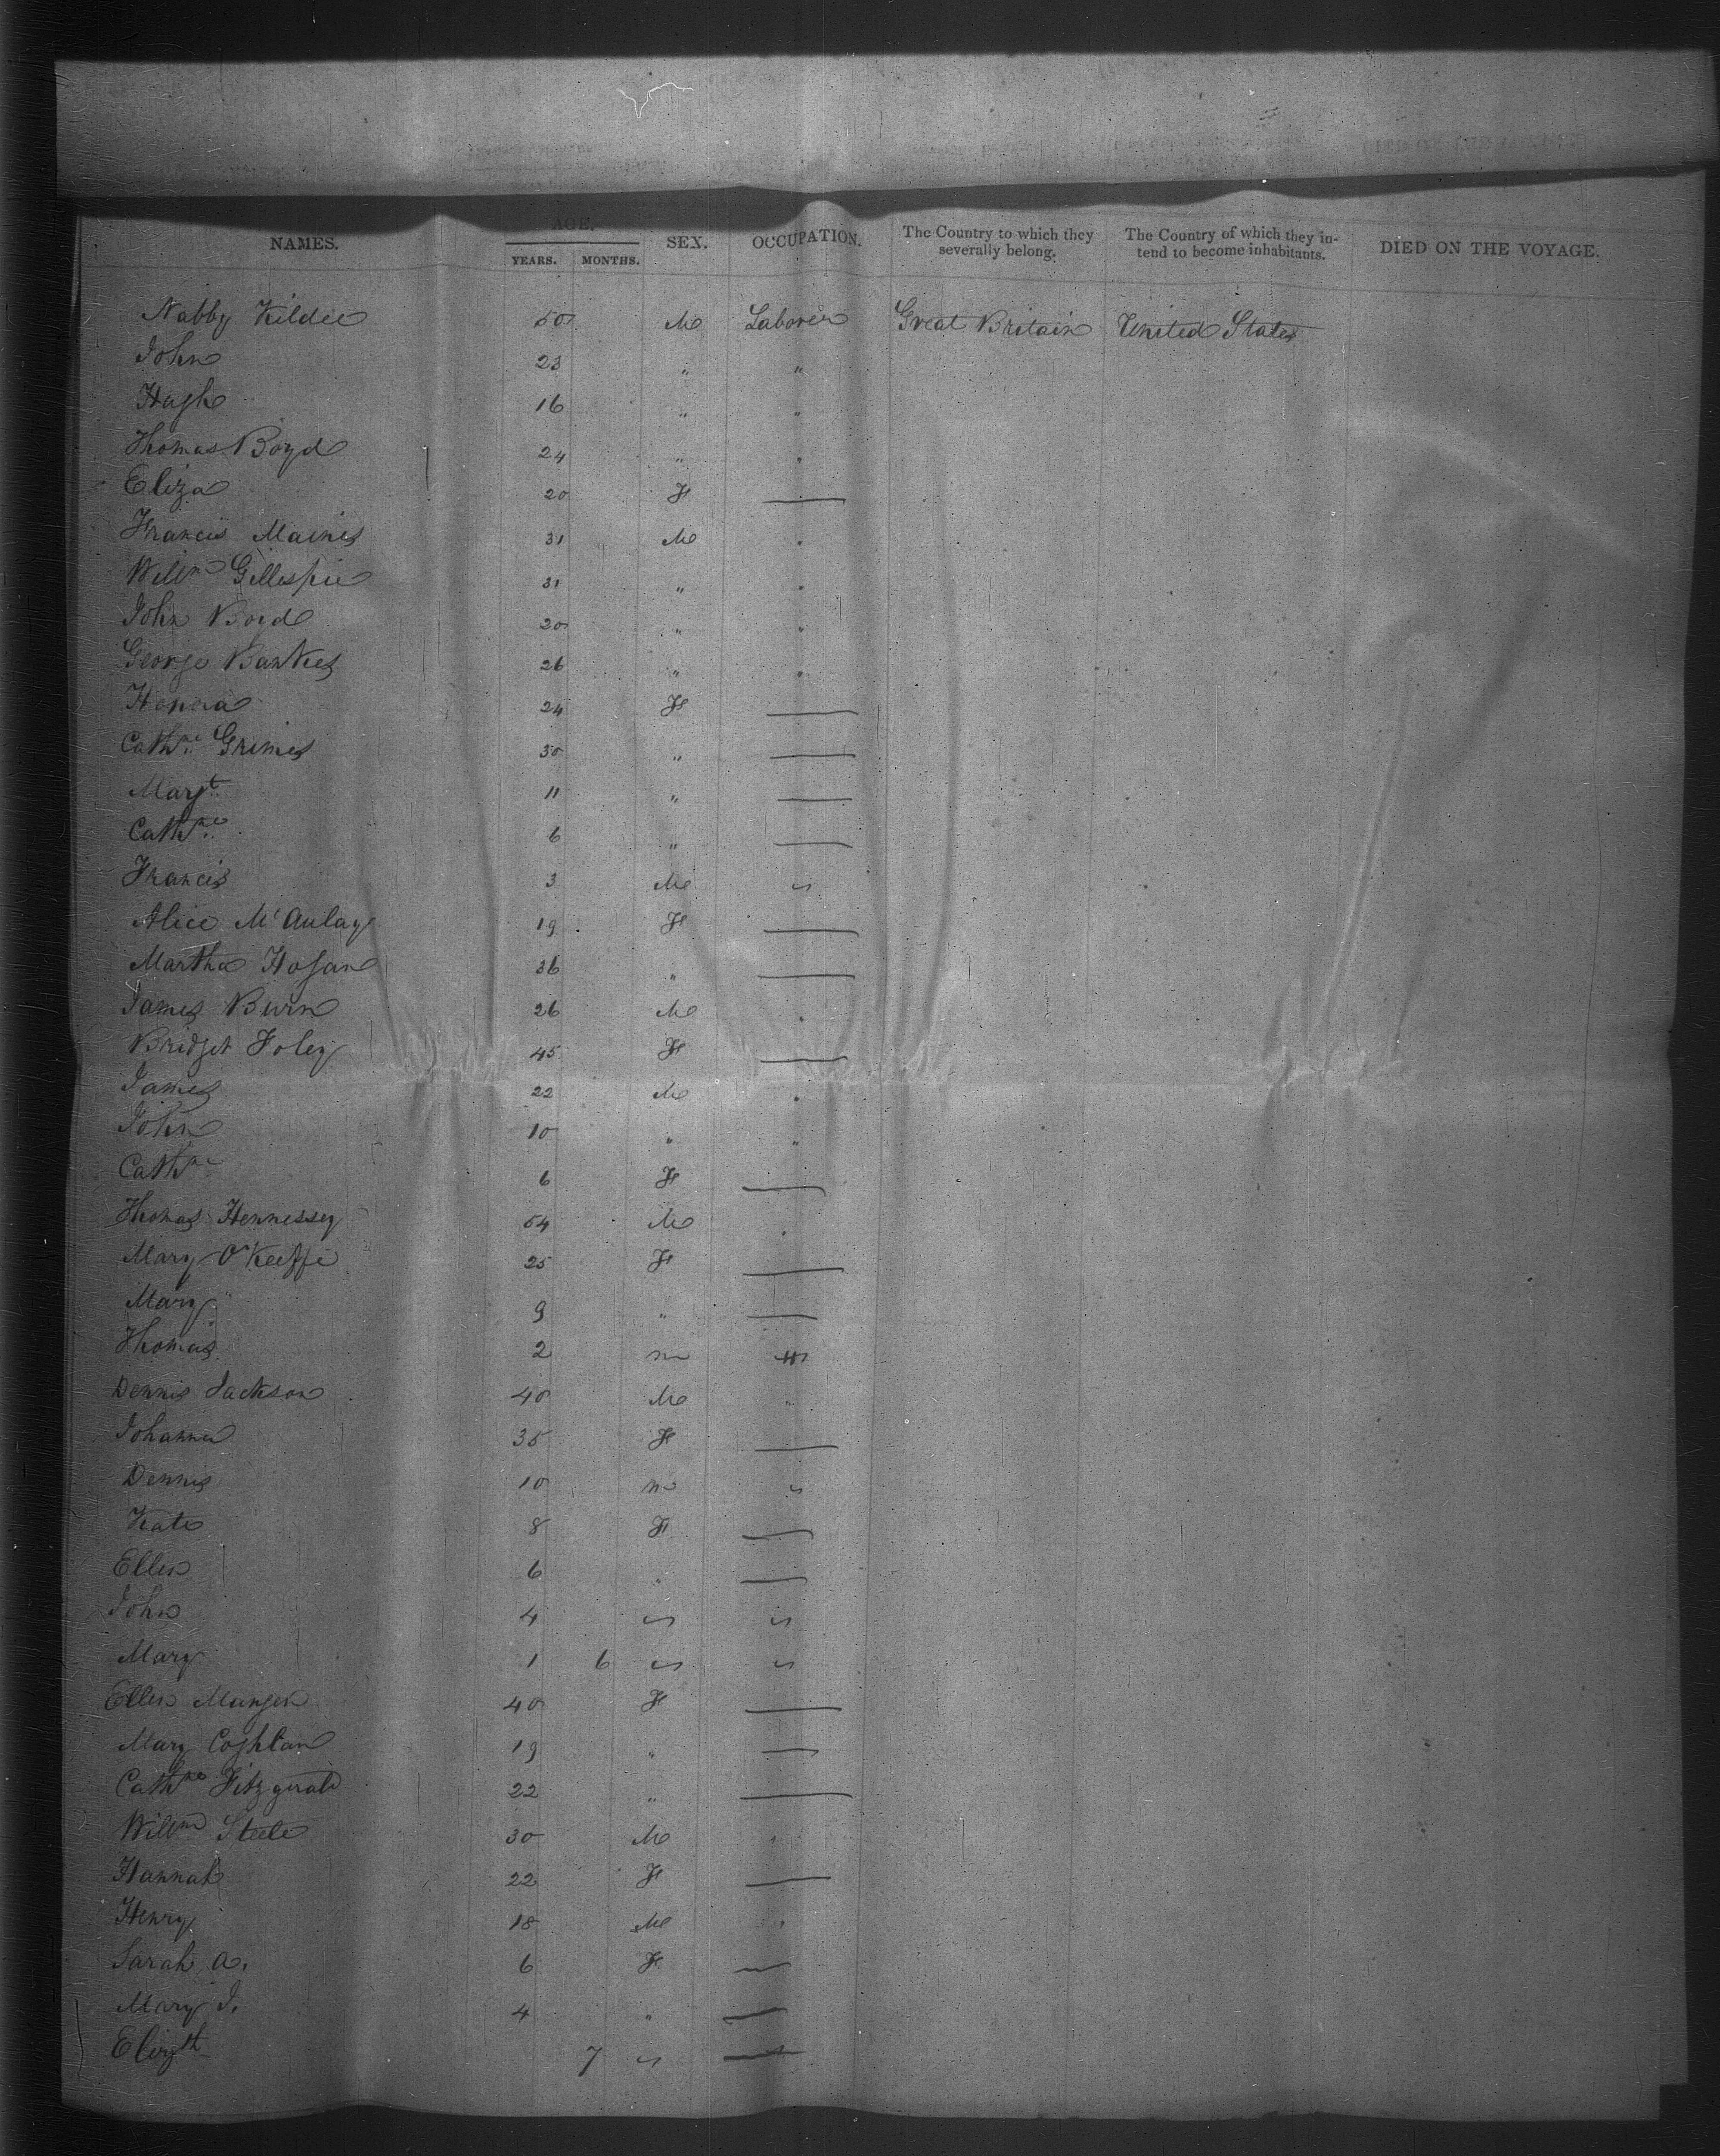 NAMES. AGE. SEX. OCCUPATION. The Country to which they severally belong. The Country of which they intend to become inhabitants. DIED ON THE VOYAGE.
YEARS. MONTHS.
Nabby Kildee 50 M Laborer Great Britain United States
John 23 " "
Hugh 16 " "
Thomas Boyd 24 " "
Eliza 20 F —
Francis Maines 31 M "
Willm Gillespie 31 " "
John Boyd 20 " "
George Bankes 26 " "
Honora 24 F —
Cathne Grimes 30 " —
Margt 11 " —
Cathne 6 " —
Francis 3 M "
Alice McAulay 19 F —
Martha Hogan 36 " —
James Burn 26 M "
Bridget Foley 45 F —
James 22 M "
John 10 " "
Cathne 6 F —
Thomas Hennessey 54 M "
Mary O'Keeffe 25 F —
Mary 9 " —
Thomas 2 m "
Dennis Jackson 40 M "
Johanna 35 F —
Dennis 10 m "
Kate 8 F —
Ellen 6 " —
John 4 " "
Mary 1 6 " "
Ellen 40 F —
Mary Coghlan 19 " —
Cathne Fitzgerald 22 " —
Willm Steele 30 M "
Hannah 22 F —
Henry 18 M "
Sarah A. 6 F —
Mary J. 4 " —
Elizth 7 " —